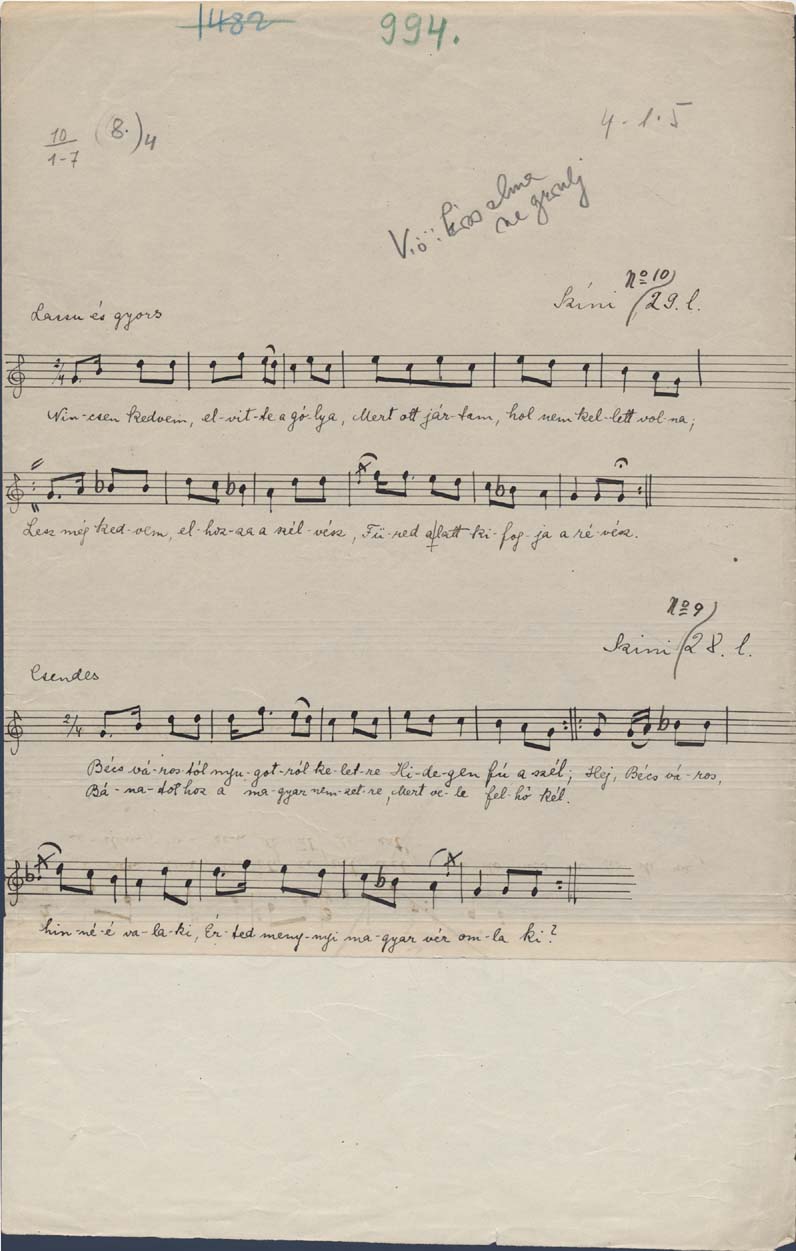 1482
994.
10 (8.)4
1-7
4-1-5
V.ö:
alma
ne
No 10
29. l.
Lassu és gyors
2/4
Nin-csen kedvem, el-vit-te a gó-lya, Mert ott jár-tam, hol nem kel-lett vol-na;
Lesz még ked-vem, el-hoz-za a szél-vész, Fü-red alatt ki-fog-ja a ré-vész.
No 9
Szini 28. l.
Csendes
2/4
Bécs vá-ros-tól nyu-got-ról ke-let-re Hi-de-gen fú a szél; Hej, Bécs vá-ros,
Bá-na-tot hoz a ma-gyar nem-zet-re, Mert ve-le fel-hő kél.
hin-né-é va-la-ki, Ér-ted meny-nyi ma-gyar vér om-la ki?